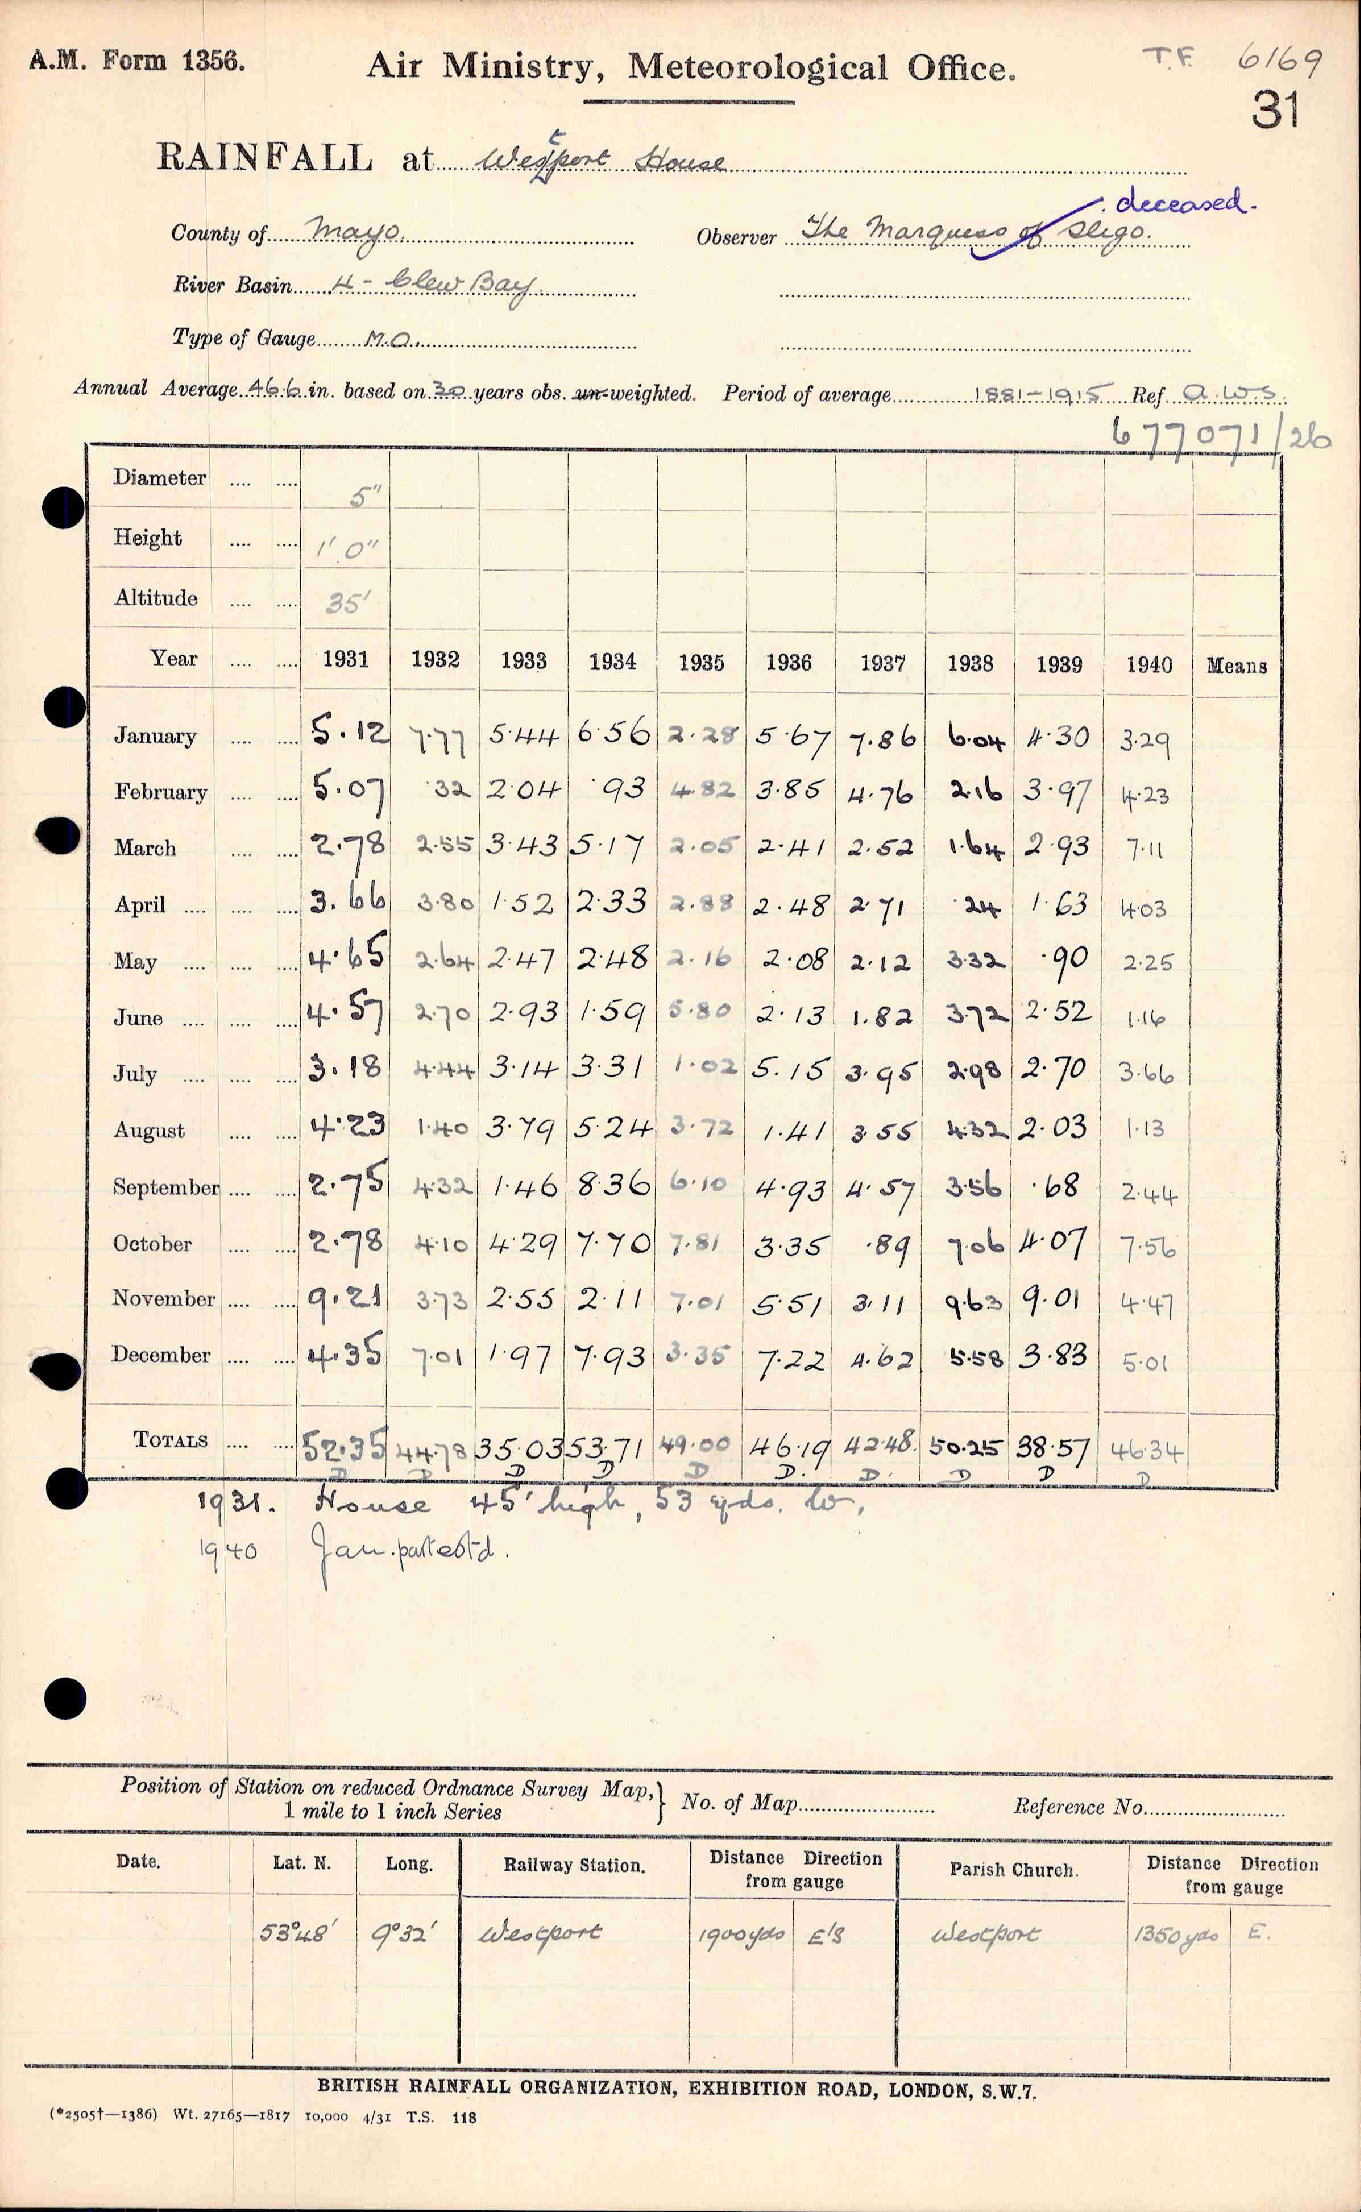 A.M. Form 1356.
Air Ministry, Meteorological Office.
T.F. 6169
31
RAINFALL at Westport House
deceased.
County of Mayo. Observer The Marquess of Sligo.
River Basin 4 - Clew Bay
Type of Gauge M.O.
Annual Average 46.6 in. based on 30 years obs. un-weighted. Period of average 1881-1915 Ref. A.W.S.
677071/26
Diameter .... .... 5"
Height .... .... 1' 0"
Altitude .... .... 35'
Year .... .... 1931 1932 1933 1934 1935 1936 1937 1938 1939 1940 Means
January .... .... 5.12 7.77 5.44 6.56 2.28 5.67 7.86 6.04 4.30 3.29
February .... .... 5.07 .32 2.04 .93 4.82 3.85 4.76 2.16 3.97 4.23
March .... .... 2.78 2.55 3.43 5.17 2.05 2.41 2.52 1.64 2.93 7.11
April .... .... .... 3.66 3.80 1.52 2.33 2.88 2.48 2.71 .24 1.63 4.03
May .... .... .... 4.65 2.64 2.47 2.48 2.16 2.08 2.12 3.32 .90 2.25
June .... .... .... 4.57 2.70 2.93 1.59 5.80 2.13 1.82 3.72 2.52 1.16
July .... .... .... 3.18 4.44 3.14 3.31 1.02 5.15 3.95 2.98 2.70 3.66
August .... .... 4.23 1.40 3.79 5.24 3.72 1.41 3.55 4.32 2.03 1.13
September .... .... 2.75 4.32 1.46 8.36 6.10 4.93 4.57 3.56 .68 2.44
October .... .... 2.78 4.10 4.29 7.70 7.81 3.35 .89 7.06 4.07 7.56
November .... .... 9.21 3.73 2.55 2.11 7.01 5.51 3.11 9.63 9.01 4.47
December .... .... 4.35 7.01 1.97 7.93 3.35 7.22 4.62 5.58 3.83 5.01
TOTALS .... .... 52.35 44.78 35.03 53.71 49.00 46.19 42.48 50.25 38.57 46.34
D D D D D D. D. D D D
1931. House 45' high, 53 yds. W.
1940 Jan. part estd.
Position of Station on reduced Ordnance Survey Map, 1 mile to 1 inch Series } No. of Map Reference No.
Date. Lat. N. Long. Railway Station. Distance Direction from gauge Parish Church. Distance Direction from gauge
53°48' 9°32' Westport 1900 yds E'S Westport 1350 yds E.
BRITISH RAINFALL ORGANIZATION, EXHIBITION ROAD, LONDON, S.W.7.
(*2505†—1386) Wt. 27165—1817 10,000 4/31 T.S. 118